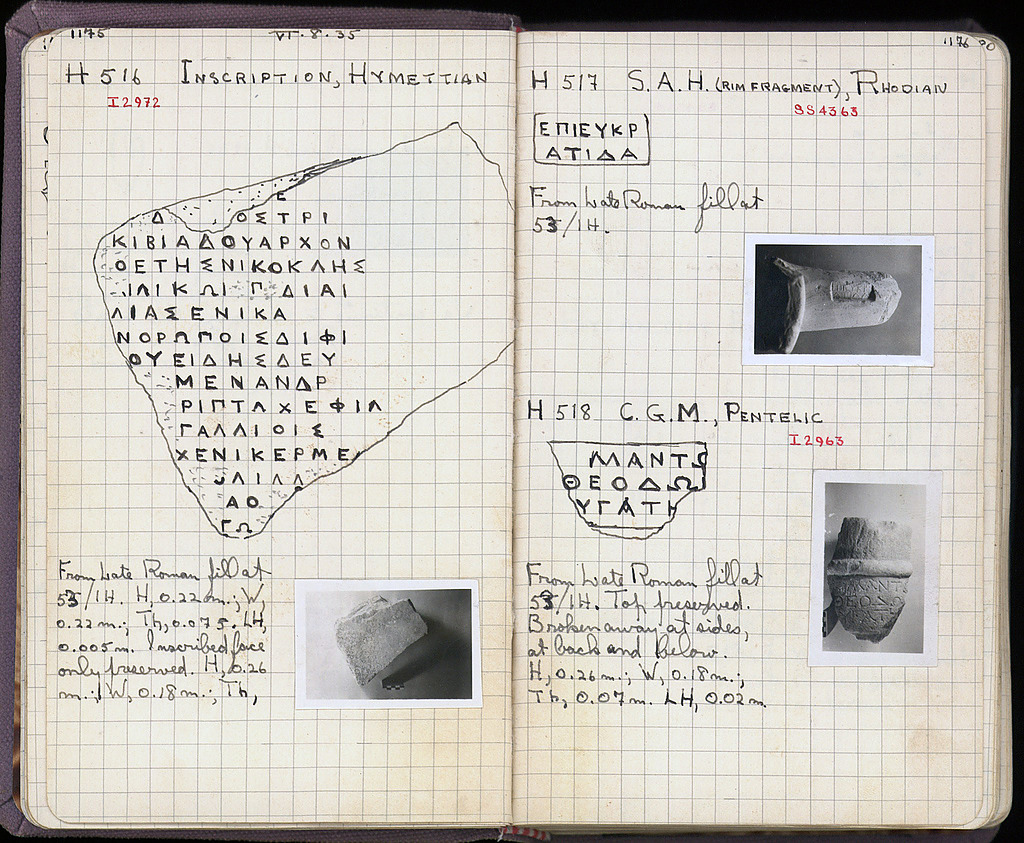 1175
VI-8-35
H 516 INSCRIPTION, HYMETTIAN
I 2972
Ε
Δ ΟΣΤΡΙ
ΚΙΒΙΑΔΟΥΑΡΧΟΝ
ΟΕΤΗΣΝΙΚΟΚΛΗΣ
ΙΛΙΚΩΙ Γ ΔΙΑΙ
ΛΙΑΣΕΝΙΚΑ
ΝΟΡΩΠΟΙΣΔΙΦΙ
ΟΥΕΙΔΗΣΔΕΥ
ΜΕΝΑΝΔΡ
ΡΙΠΤΛΧΕΦΙΛ
ΓΑΛΛΙΟΙΣ
ΧΕΝΙΚΕΡΜΕ
ΛΙΛΛ
ΑΟ
ΓΩ
From Late Roman fill at
53/ΙΗ. H, 0.22 m.; W,
0.22 m.; Th, 0.075. LH,
0.005 m. Inscribed face
only preserved. H, 0.26
m.; W, 0.18 m.; Th,
1176
H 517 S.A.H. (RIM FRAGMENT), RHODIAN
SS 4363
ΕΠΙΕΥΚΡ
ΑΤΙΔΑ
From Late Roman fill at
53/ΙΗ.
H 518 C.G.M., PENTELIC
I 2963
ΜΑΝΤΩ
ΘΕΟΔΩ
ΥΓΑΤΗ
From Late Roman fill at
53/ΙΗ. Top preserved.
Broken away at sides,
at back and below.
H, 0.26 m.; W, 0.18 m.;
Th, 0.07 m. LH, 0.02 m.